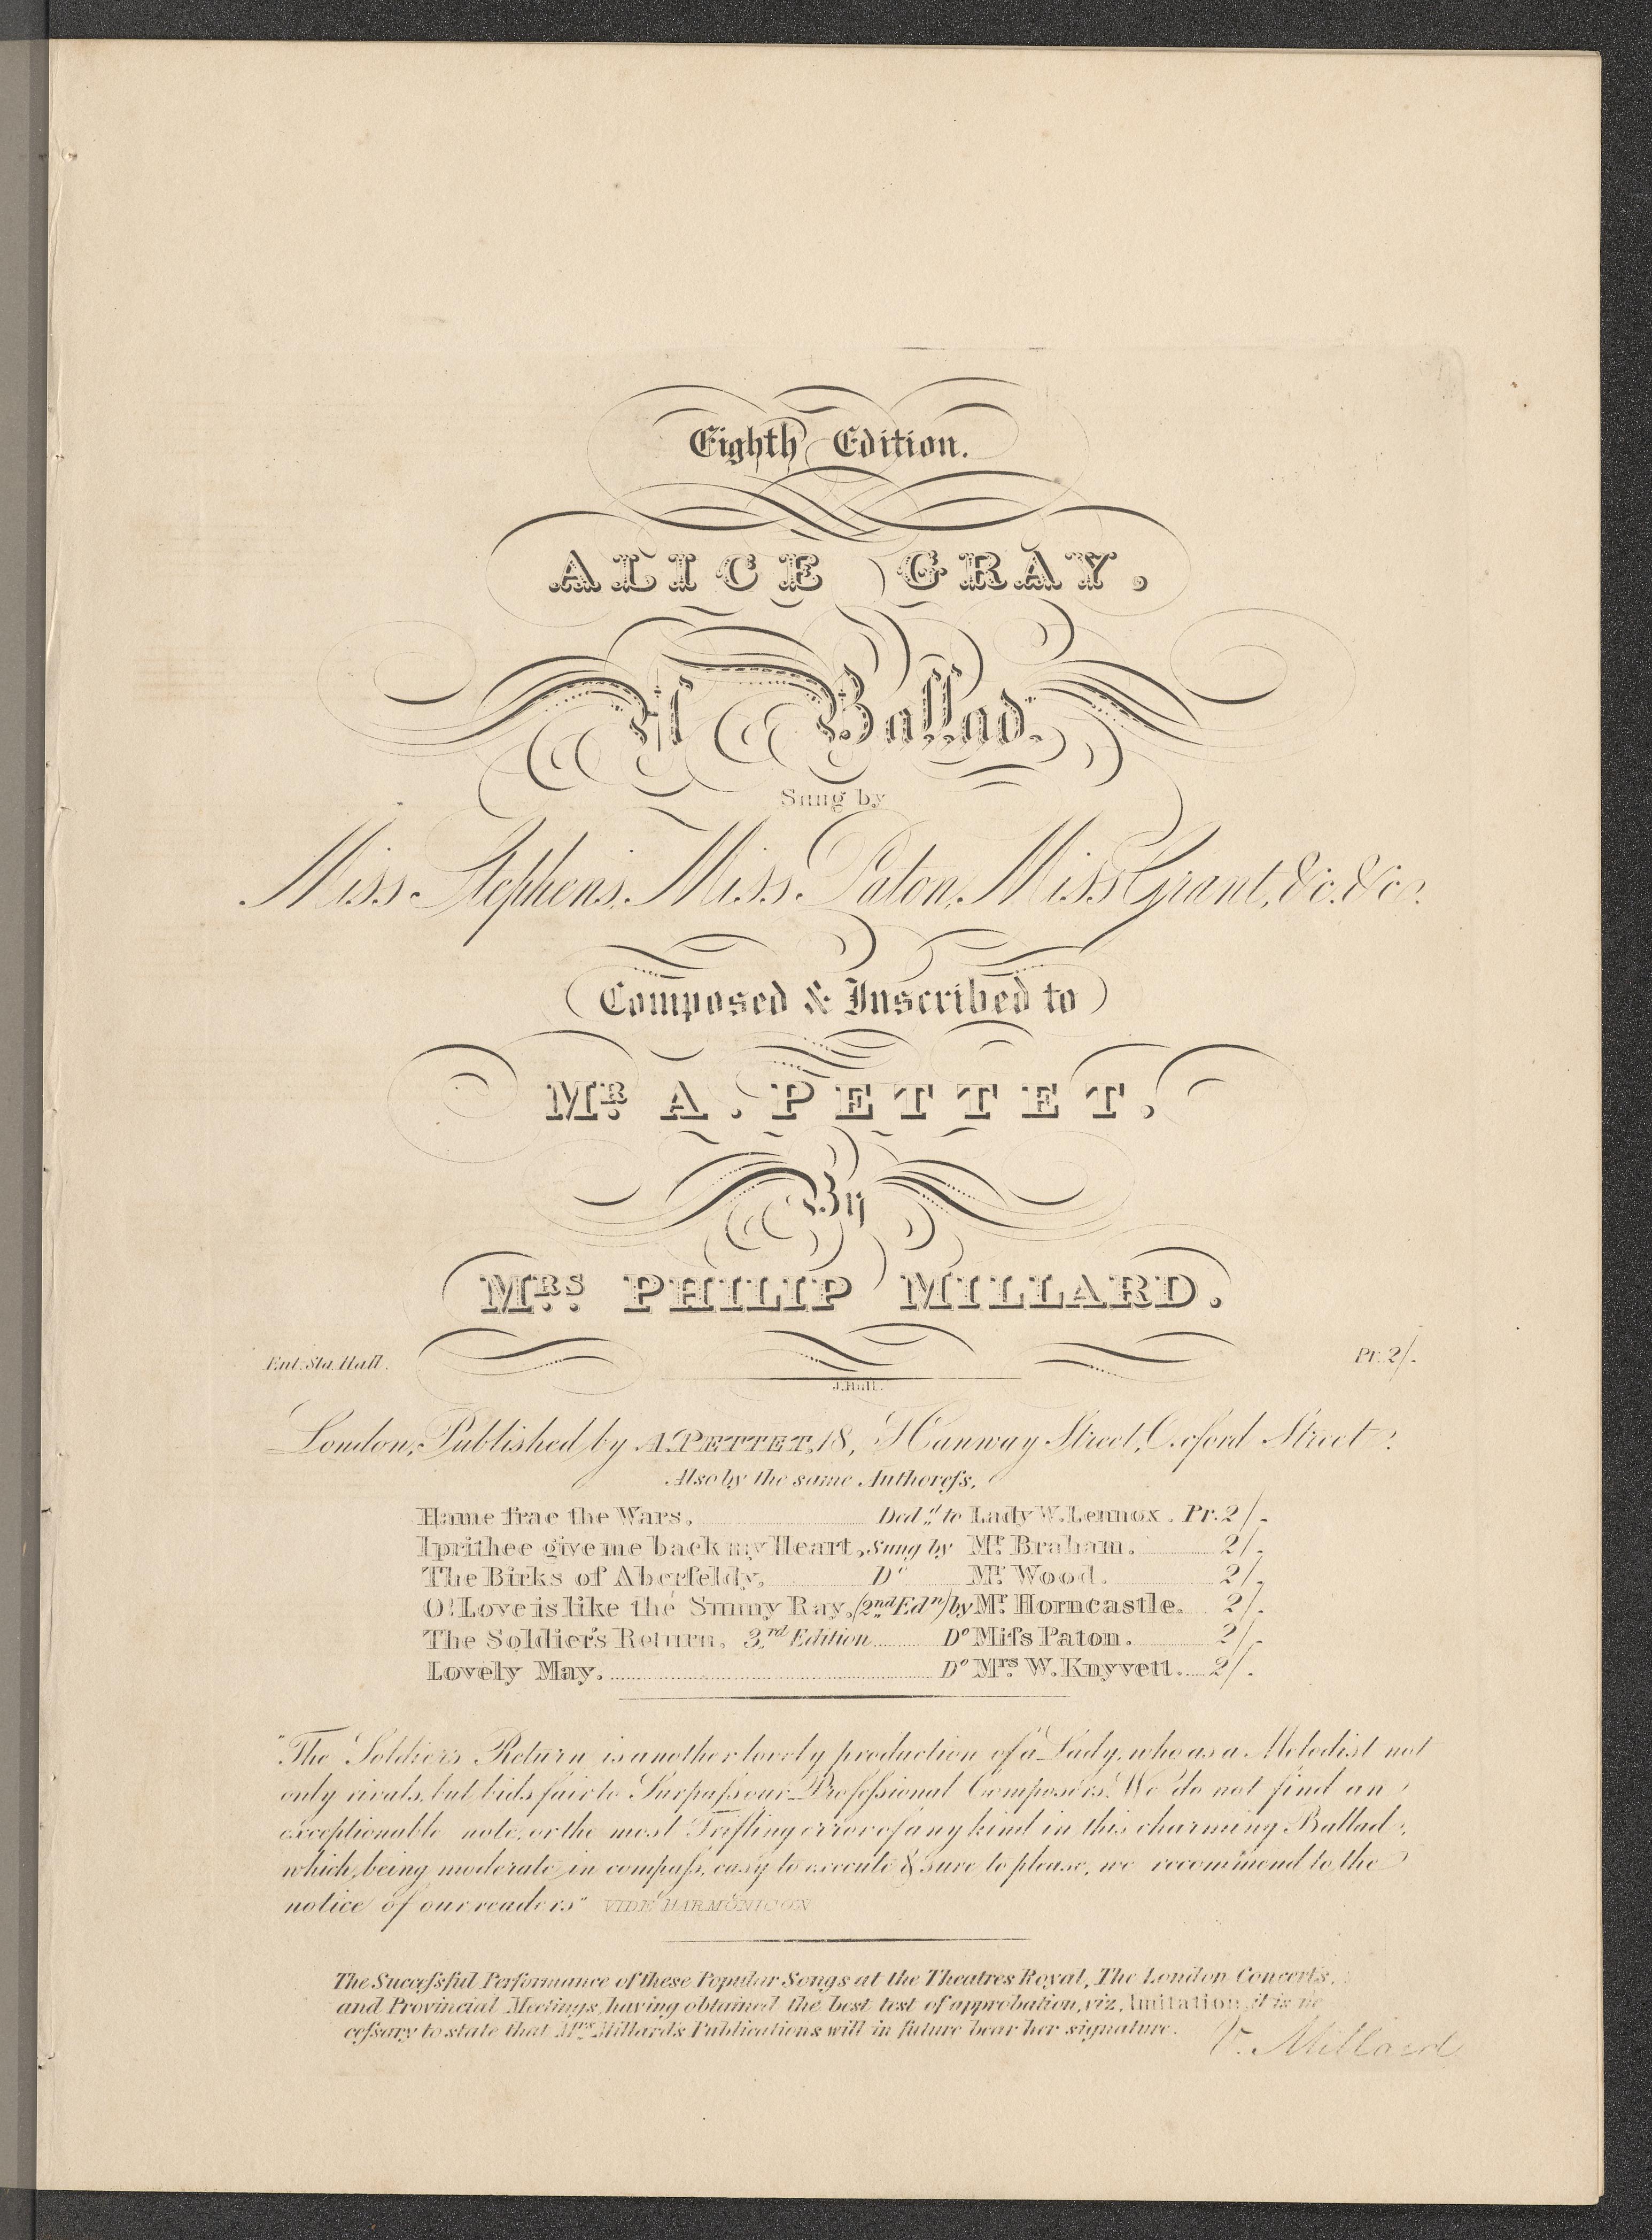 Eighth Edition.
ALICE GRAY.
A Ballad.
Sung by
Miss Stephens, Miss Paton, Miss Grant, &c. &c.
Composed & Inscribed to
Mr. A. PETTET,
By
Mrs. PHILIP MILLARD.
Ent. Sta. Hall.
Pr. 2/-
J. Hall.
London, Published by A. PETTET, 18, Hanway Street, Oxford Street.
Also by the same Authoreſs,
Hame frae the Wars, Ded.d to Lady W. Lennox. Pr. 2/-
I prithee give me back my Heart, Sung by Mr. Braham. 2/-
The Birks of Aberfeldy, Do Mr. Wood. 2/-
O! Love is like the Sunny Ray, (2nd Edn) by Mr. Horncastle. 2/-
The Soldier's Return, 3rd Edition Do Miſs Paton. 2/-
Lovely May. Do Mrs. W. Knyvett. 2/-
"The Soldier's Return is another lovely production of a Lady, who as a Melodist not
only rivals, but bids fair to Surpaſs our Profeſsional Composers. We do not find an
exceptionable note, or the most Trifling error of any kind in this charming Ballad,
which, being moderate in compaſs, easy to execute & sure to please, we recommend to the
notice of our readers" VIDE HARMONICON
The Succeſsful Performance of these Popular Songs at the Theatres Royal, The London Concerts,
and Provincial Meetings, having obtained the best test of approbation, viz, Imitation, it is ne
ceſsary to state that Mrs. Millard's Publications will in future bear her signature.
V. Millard